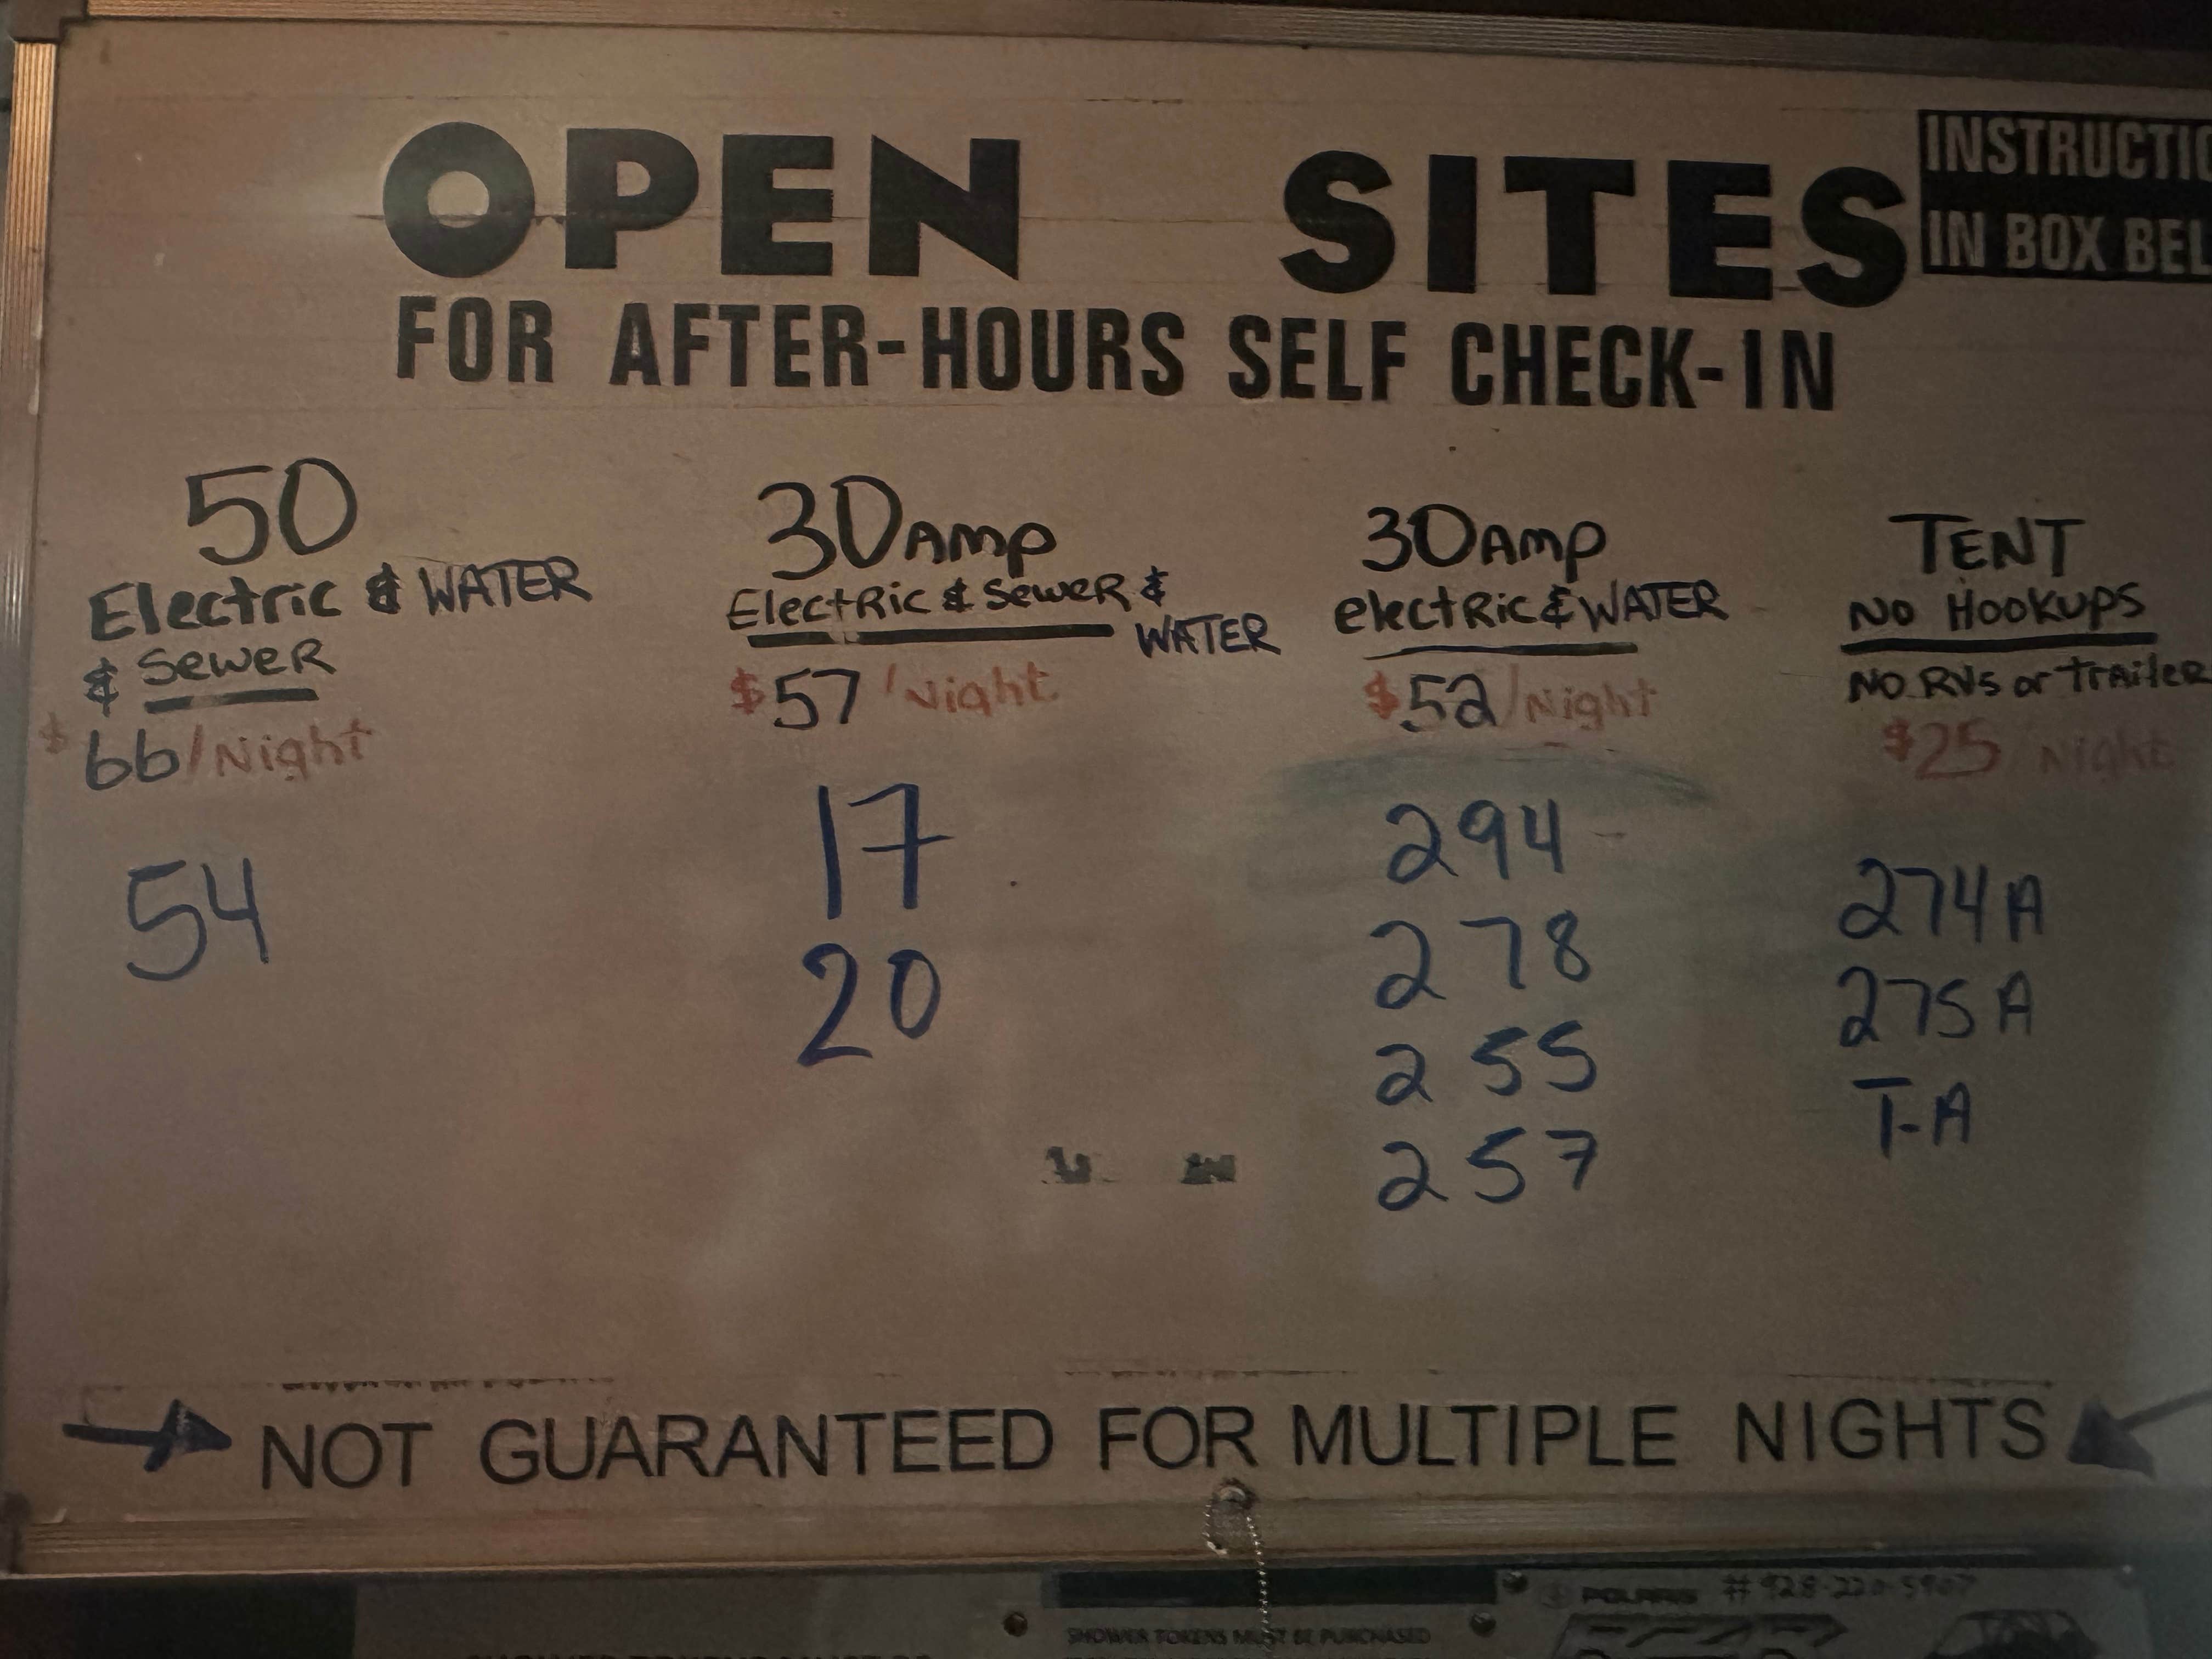 OPEN SITES
INSTRUCTIO
IN BOX BEL
FOR AFTER-HOURS SELF CHECK-IN
50
Electric & WATER
& Sewer
$66/Night
54
30 AMP
Electric & Sewer &
WATER
$57/Night
17
20
30 AMP
electric & WATER
$52/Night
294
278
255
257
TENT
No Hookups
No RVs or Trailer
$25/Night
274A
275A
T-A
NOT GUARANTEED FOR MULTIPLE NIGHTS
POLARIS
SHOWER TOKENS MUST BE PURCHASED